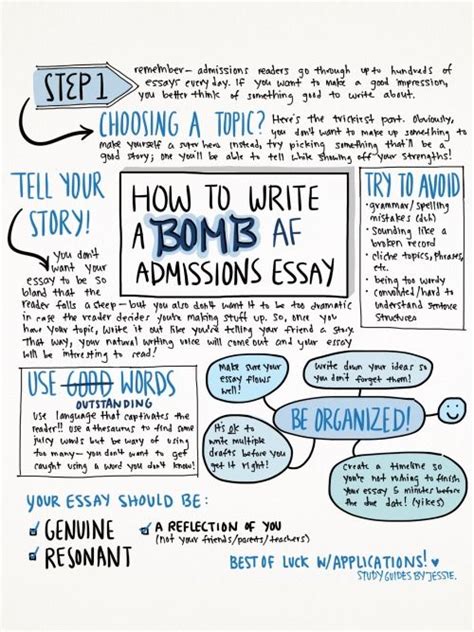 STEP 1
remember— admissions readers go through up to hundreds of
essays every day. If you want to make a good impression,
you better think of something good to write about.
CHOOSING A TOPIC?
Here's the trickiest part. Obviously,
you don't want to make up something to
make yourself a super hero. Instead, try picking something that'll be a
good story; one you'll be able to tell while showing off your strengths!
TELL YOUR
STORY!
You don't
want your
essay to be so
bland that the
reader falls asleep— but you also don't want it to be too dramatic
in case the reader decides you're making stuff up. So, once you
have your topic, write it out like you're telling your friend a story.
That way, your natural writing voice will come out and your essay
will be interesting to read!
HOW TO WRITE
A BOMB AF
ADMISSIONS ESSAY
TRY TO AVOID
· grammar/spelling
mistakes (duh)
· sounding like a
broken record
· cliche topics, phrases,
etc.
· being too wordy
· convoluted/hard to
understand sentence
structures
USE GOOD WORDS
OUTSTANDING
Use language that captivates the
reader!! Use a thesaurus to find some
juicy words but be wary of using
too many— you don't want to get
caught using a word you don't know!
Make sure your
essay flows
well!
Write down your ideas so
you don't forget them!
BE ORGANIZED!
It's ok to
write multiple
drafts before you
get it right!
Create a timeline so
you're not rushing to finish
your essay 5 minutes before
the due date! (yikes)
YOUR ESSAY SHOULD BE:
GENUINE
RESONANT
A REFLECTION OF YOU
(not your friends/parents/teachers)
BEST OF LUCK W/APPLICATIONS!
STUDYGUIDESBYJESSIE.